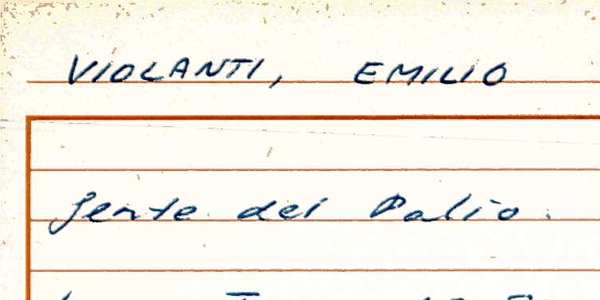 VIOLANTI, EMILIO
Gente del Palio.